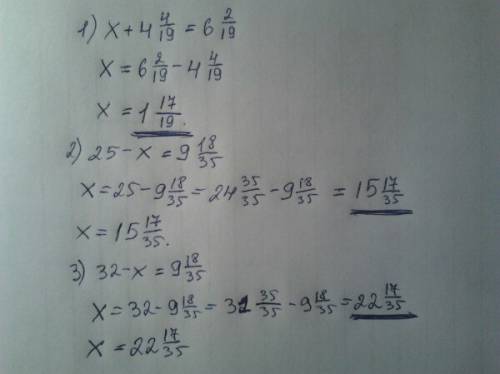 1) x + 4 4/19 = 6 2/19
x = 6 2/19 - 4 4/19
x = 1 17/19.
2) 25 - x = 9 18/35
x = 25 - 9 18/35 = 24 35/35 - 9 18/35 = 15 17/35
x = 15 17/35.
3) 32 - x = 9 18/35
x = 32 - 9 18/35 = 31 35/35 - 9 18/35 = 22 17/35
x = 22 17/35